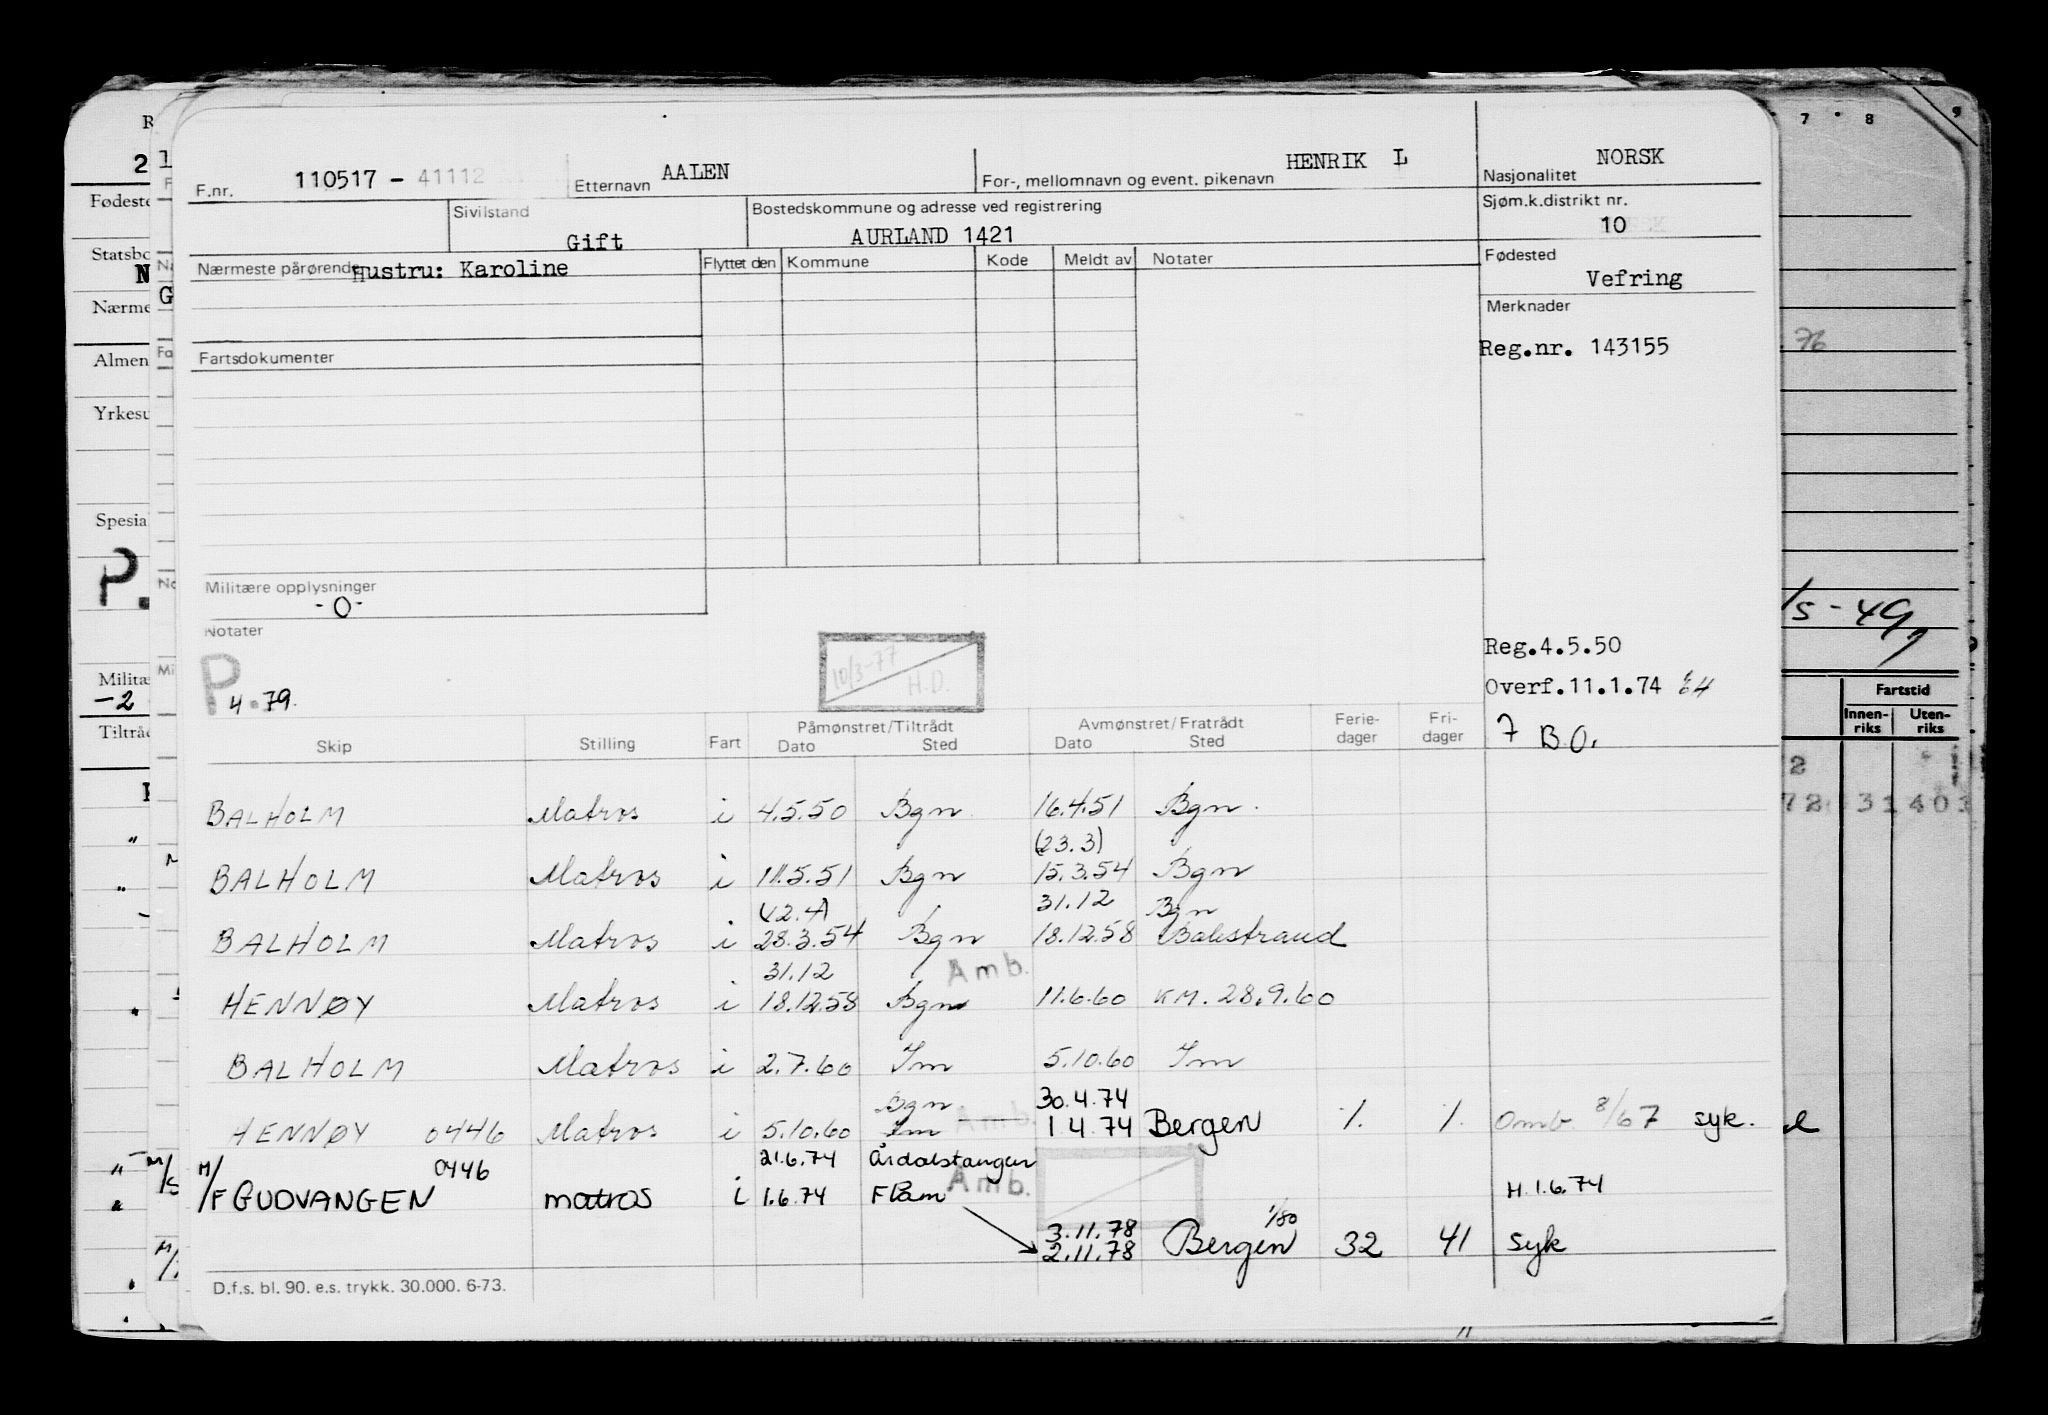 F.nr. 110517 - 41112 Etternavn AALEN For-, mellomnavn og event. pikenavn HENRIK L Nasjonalitet NORSK
Sivilstand Gift Bostedskommune og adresse ved registrering AURLAND 1421 Sjøm.k.distrikt nr. 10
Nærmeste pårørende Hustru: Karoline Flyttet den Kommune Kode Meldt av Notater Fødested Vefring
Merknader
Fartsdokumenter Reg.nr. 143155
Militære opplysninger
-0-
Notater Reg.4.5.50
P 4.79. 10/3-77 H.D. Overf.11.1.74 64
7 B.O.
Skip Stilling Fart Påmønstret/Tiltrådt Dato Sted Avmønstret/Fratrådt Dato Sted Ferie-dager Fri-dager
BALHOLM Matros i 4.5.50 Bgn 16.4.51 Bgn.
(23.3)
BALHOLM Matros i 11.5.51 Bgn 15.3.54 Bgn
(2.4) 31.12 Bgn
BALHOLM Matros i 28.3.54 Bgn 18.12.58 Balestrand
31.12 Amb.
HENNØY Matros i 18.12.58 Bgn 11.6.60 KM. 28.9.60
BALHOLM Matros i 2.7.60 Im 5.10.60 Im
Bgn 30.4.74
HENNØY 0446 Matros i 5.10.60 Im Amb. 1.4.74 Bergen ./. ./. Omb. 8/67 syk.
0446 21.6.74 Årdalstangen
M/F GUDVANGEN matros i 1.6.74 Flåm Amb. H.1.6.74
3.11.78 1/80
2.11.78 Bergen 32 41 syk
D.f.s. bl. 90. e.s. trykk. 30.000. 6-73.
7 8 9
76
/5-49,
Fartstid
Innen-riks Uten-riks
2
72 31 403
R
2
Fødeste
Statsbo
N
Nærme
G
Almen
Yrkesu
Spesia
P.
Militæ
-2
Tiltråd